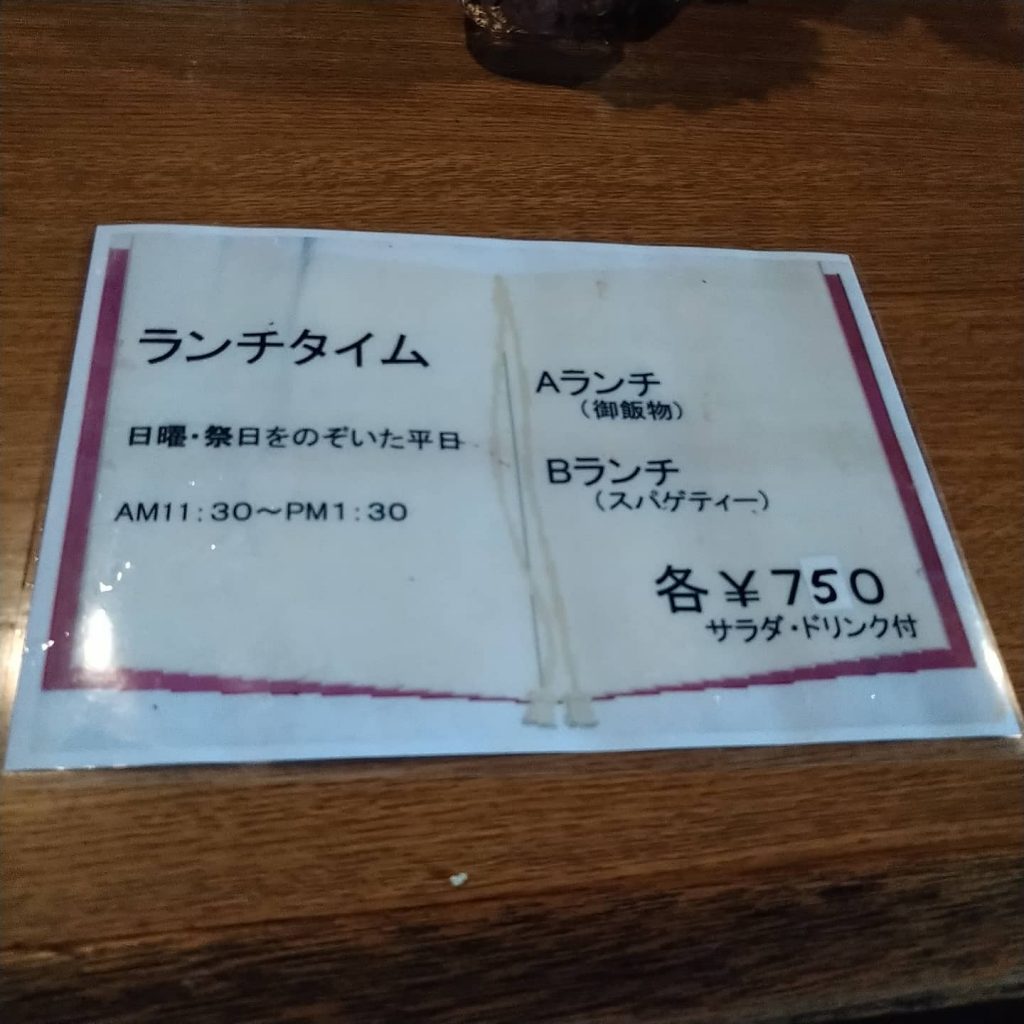 ランチタイム
日曜・祭日をのぞいた平日
AM11:30～PM1:30
Aランチ
（御飯物）
Bランチ
（スパゲティー）
各￥750
サラダ・ドリンク付